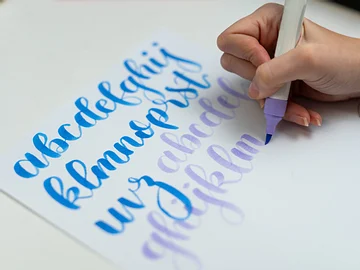 abcdefghij
klmnoprst
uvz
abcdef
ghijklm